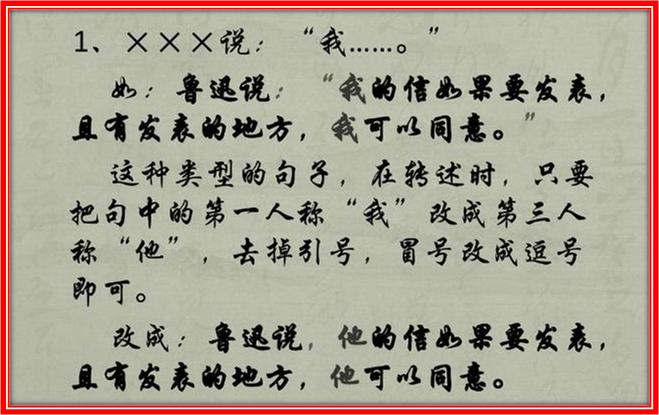 1、×××说：“我……。”
如：鲁迅说：“我的信如果要发表，
且有发表的地方，我可以同意。”
这种类型的句子，在转述时，只要
把句中的第一人称“我”改成第三人
称“他”，去掉引号，冒号改成逗号
即可。
改成：鲁迅说，他的信如果要发表，
且有发表的地方，他可以同意。